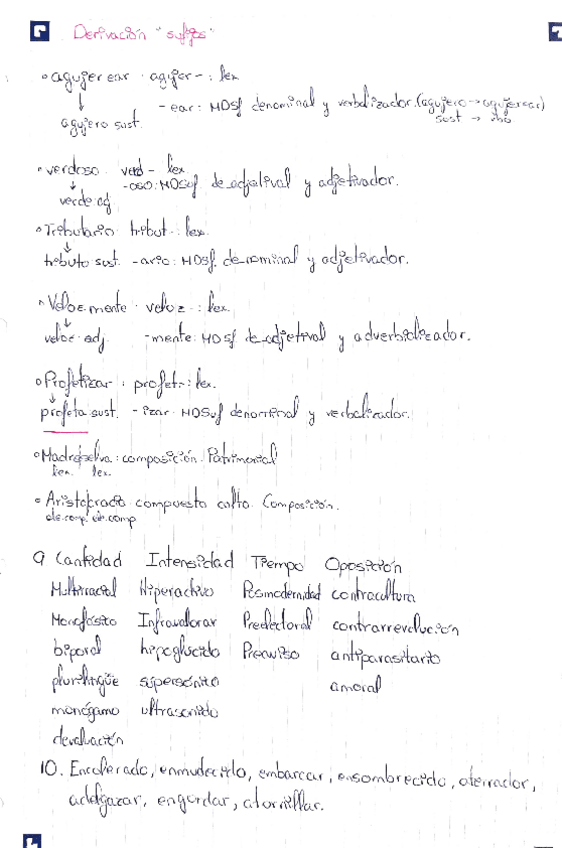 Derivación "sufijos"
• agujerear · agujer- : lex
↓ - ear: MDsf denominal y verbalizador. (agujero → agujerear)
agujero sust. sust → vbo
• verdoso · verd - lex
↓ -oso: MDsuf de adjetival y adjetivador.
verde: adj
• Tributario: tribut- : lex.
↓
tributo sust. - ario: MDsf. denominal y adjetivador.
• Velozmente · veloz - : lex.
↓
veloz: adj. -mente: MDsf de adjetival y adverbializador.
• Profetizar : profet- : lex.
↓
profeta sust. - izar · MDSuf denominal y verbalizador.
• Madreselva : composición. Patrimonial
lex. lex.
• Aristocracia compuesto culto. Composición.
ele.comp. ele.comp
9 Cantidad Intensidad Tiempo Oposición
Multirracial Hiperactivo Posmodernidad contracultura
Infravalorar Preelectoral contrarrevolución
hipoglucido Preaviso antiparasitario
plurilingüe supersónico amoral
monógamo ultrasonido
devaluación
10. enmudecido, embarcar, ensombrecido, aterrador,
adelgazar, engordar, atornillar.